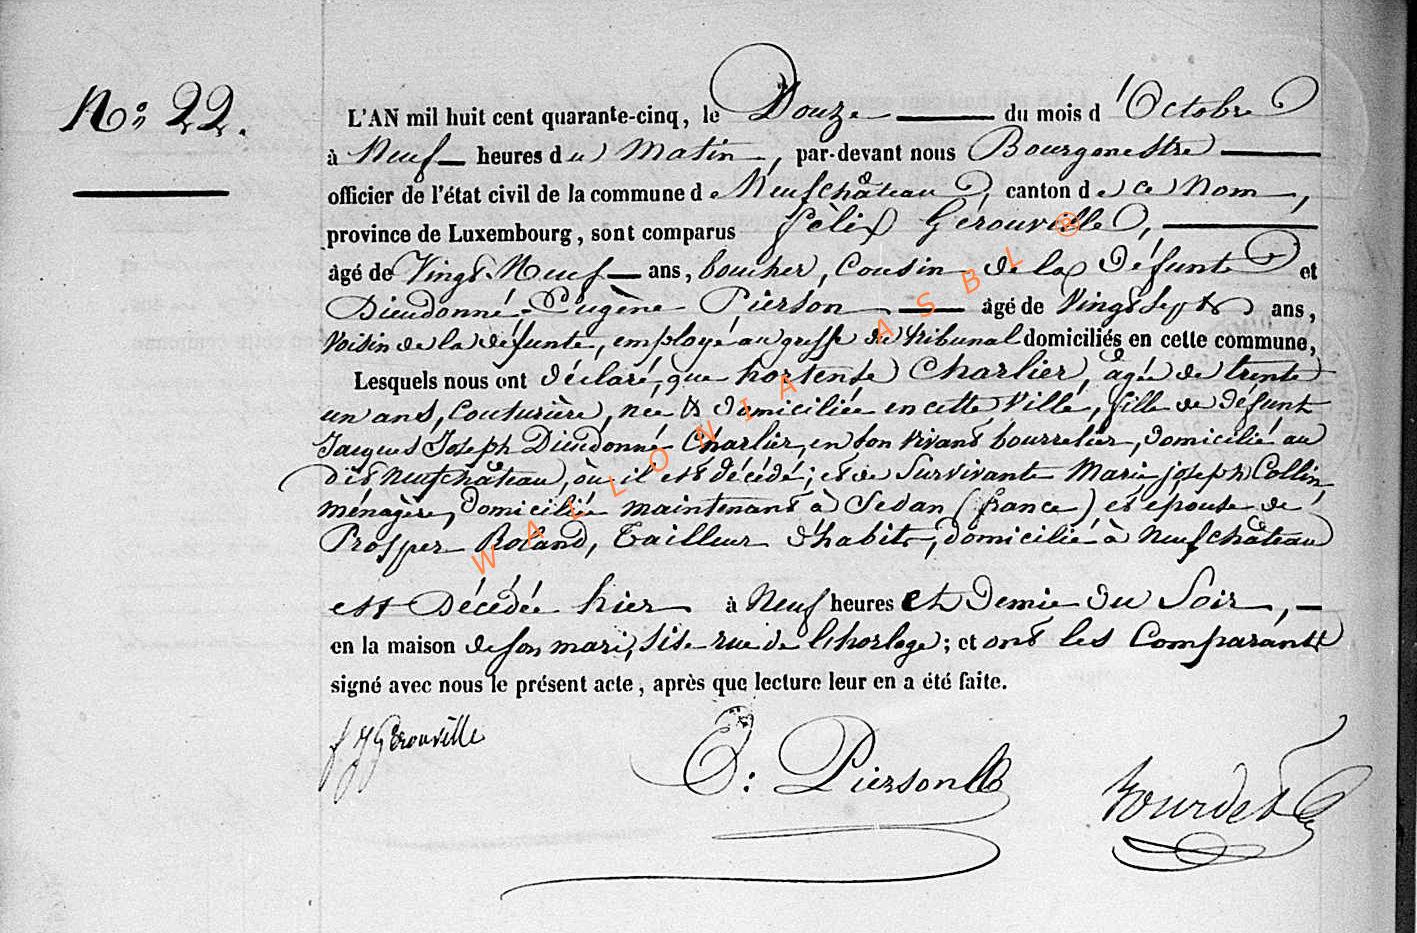 N.° 22.
L'AN mil huit cent quarante-cinq, le Douze du mois d'Octobre
à Neuf heures du Matin, par-devant nous Bourgmestre
officier de l'état civil de la commune de Neufchâteau, canton de ce nom,
province de Luxembourg, sont comparus Félix Gérouville,
âgé de Vingt-Neuf ans, boucher, Cousin de la défunte et
Dieudonné-Eugène Pierson âgé de Vingt sept ans,
Voisin de la défunte, employé au greffe du tribunal domiciliés en cette commune,
Lesquels nous ont déclaré, que hortense Charlier, agée de trente
un ans, Couturière, née & domiciliée en cette Ville, fille de défunt
Jacques Joseph Dieudonné Charlier, en son vivant bourrelier, domicilié au
dit Neufchâteau, où il est décédé; et de Survivante Marie joseph Collin,
ménagère, domiciliée maintenant à Sedan (france) et épouse de
Prosper Roland, Tailleur d'habits, domicilié à Neufchâteau
est Décédée hier à Neuf heures et Demie du Soir,
en la maison de son mari, sise rue de l'horloge; et ont les Comparants
signé avec nous le présent acte, après que lecture leur en a été faite.
f J Gérouville
E: Pierson
Bourdet
WALLONIA ASBL ®